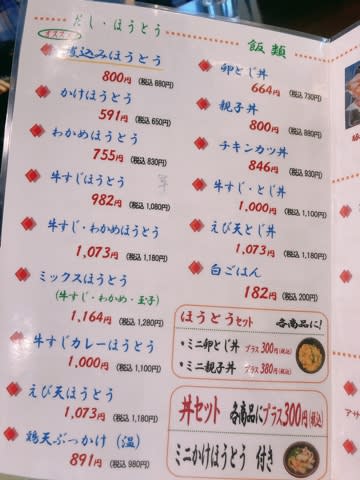 だし・ほうとう
オススメ
煮込みほうとう
800円 (税込 880円)
かけほうとう
591円 (税込 650円)
わかめほうとう
755円 (税込 830円)
牛すじほうとう
982円 (税込 1,080円)
牛すじ・わかめほうとう
1,073円 (税込 1,180円)
ミックスほうとう
(牛すじ・わかめ・玉子)
1,164円 (税込 1,280円)
牛すじカレーほうとう
1,000円 (税込 1,100円)
えび天ほうとう
1,073円 (税込 1,180円)
鶏天ぶっかけ (温)
891円 (税込 980円)
飯類
卵とじ丼
664円 (税込 730円)
親子丼
800円 (税込 880円)
チキンカツ丼
846円 (税込 930円)
牛すじ・とじ丼
1,000円 (税込 1,100円)
えび天とじ丼
1,073円 (税込 1,180円)
白ごはん
182円 (税込 200円)
ほうとうセット 各商品に!
・ミニ卵とじ丼 プラス300円(税込)
・ミニ親子丼 プラス380円(税込)
丼セット 各商品にプラス300円(税込)
ミニかけほうとう 付き